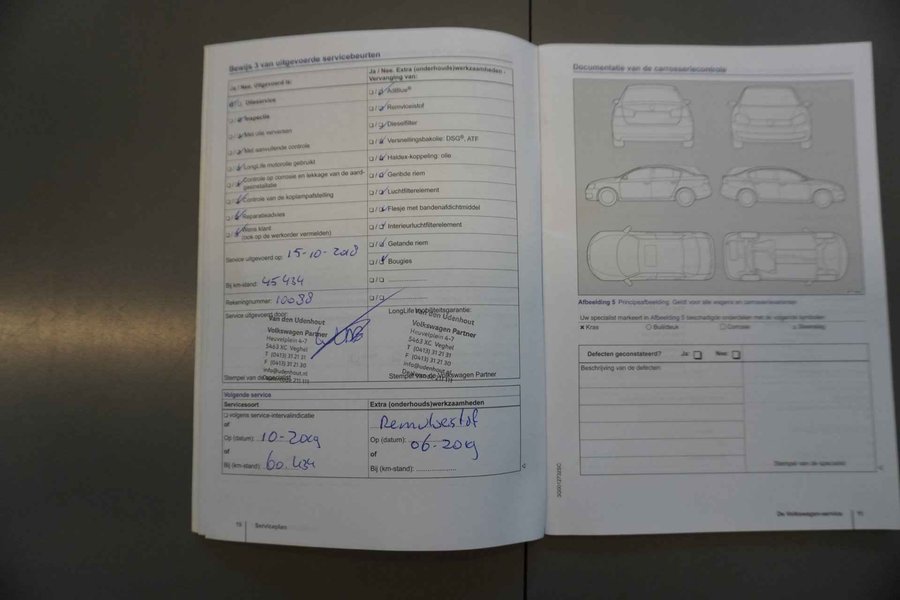 Bewijs 3 van uitgevoerde servicebeurten
Ja / Nee. Uitgevoerd is:
Olieservice
Inspectie
Met olie verversen
Met aanvullende controle
LongLife motorolie gebruikt
Controle op corrosie en lekkage van de aard-
gasinstallatie
Controle van de koplampafstelling
Reparatieadvies
Wens klant
(ook op de werkorder vermelden)
Service uitgevoerd op: 15-10-2018
Bij km-stand: 45434
Rekeningnummer: 10038
Service uitgevoerd door:
Van den Udenhout
Volkswagen Partner
Heuvelplein 4-7
5463 XC Veghel
T (0413) 31 21 31
F (0413) 31 21 30
info@udenhout.nl
Stempel van de specialist
Ja / Nee. Extra (onderhouds)werkzaamheden -
Vervanging van:
AdBlue®
Remvloeistof
Dieselfilter
Versnellingsbakolie: DSG®, ATF
Haldex-koppeling: olie
Geribde riem
Luchtfilterelement
Flesje met bandenafdichtmiddel
Interieurluchtfilterelement
Getande riem
Bougies
LongLife mobiliteitsgarantie:
Van den Udenhout
Volkswagen Partner
Heuvelplein 4-7
5463 XC Veghel
T (0413) 31 21 31
F (0413) 31 21 30
info@udenhout.nl
Stempel van de Volkswagen Partner
Volgende service
Servicesoort
volgens service-intervalindicatie
of
Op (datum): 10-2019
of
Bij (km-stand): 60.434
Extra (onderhouds)werkzaamheden
Remvloeistof
Op (datum): 06-2019
of
Bij (km-stand):
Serviceplan
Documentatie van de carrosseriecontrole
Afbeelding 5 Principeafbeelding: Geldt voor alle wagens en carrosserievarianten
Uw specialist markeert in Afbeelding 5 beschadigde onderdelen met de volgende symbolen
Kras
Buil/deuk
Corrosie
Steenslag
Defecten geconstateerd? Ja: Nee:
Beschrijving van de defecten:
Stempel van de specialist
De Volkswagen-service